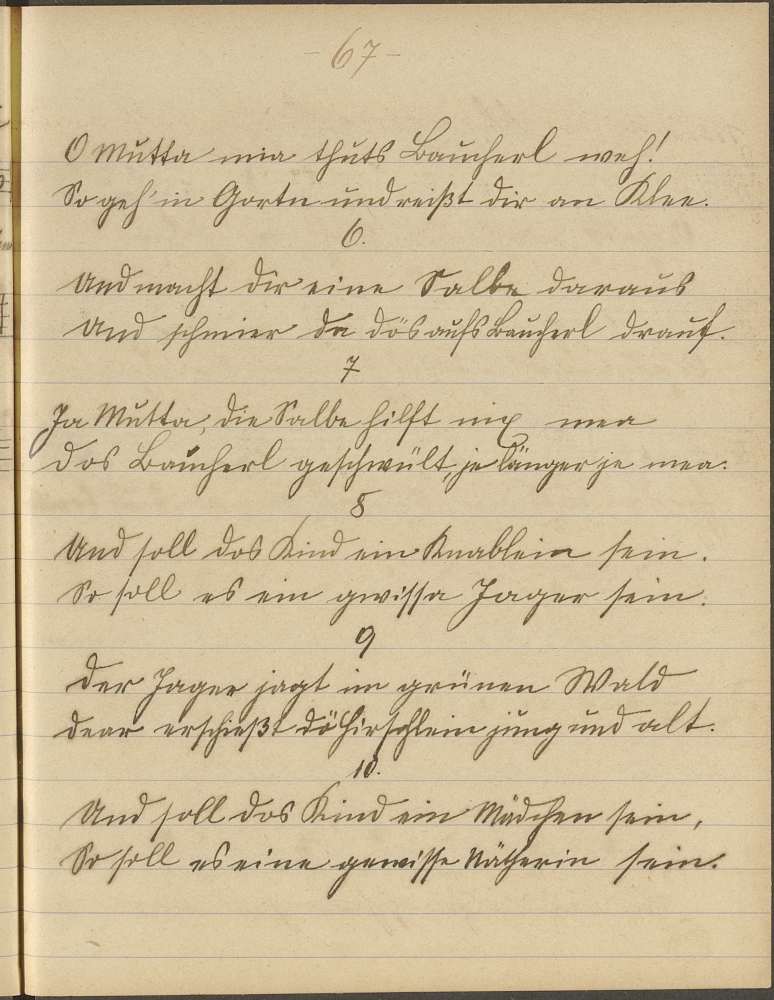 - 67 -
O Mutta mia thuts Baucherl weh!
So geh' in Gortn und reißt dir an Klee.
6.
Und macht dir eine Salbe daraus
Und schmier da dös aufs Baucherl drauf.
7
Ja Mutta, die Salbe hilft nix mea
Dos Baucherl geschwült, je länger je mea.
8
Und soll dos Kind ein Knablein sein.
So soll es ein gwissa Jager sein.
9
Der Jager jagt im grünen Wald
dear erschießt dö Hirschlein jung und alt.
10.
Und soll dos Kind ein Mädchen sein,
So soll es eine gewisse Nätherin sein.